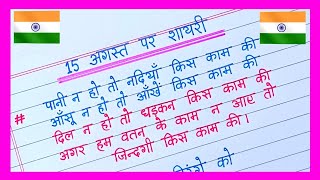 15 अगस्त पर शायरी
# पानी न हो तो नदियाँ किस काम की
आँसू न हो तो आँखें किस काम की
दिल न हो तो धड़कन किस काम की
अगर हम वतन के काम न आए तो
जिन्दगी किस काम की।
को